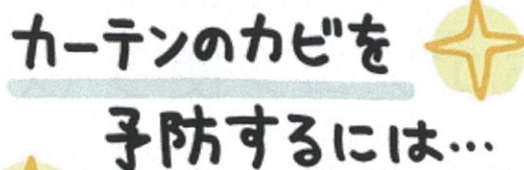 カーテンのカビを
予防するには…